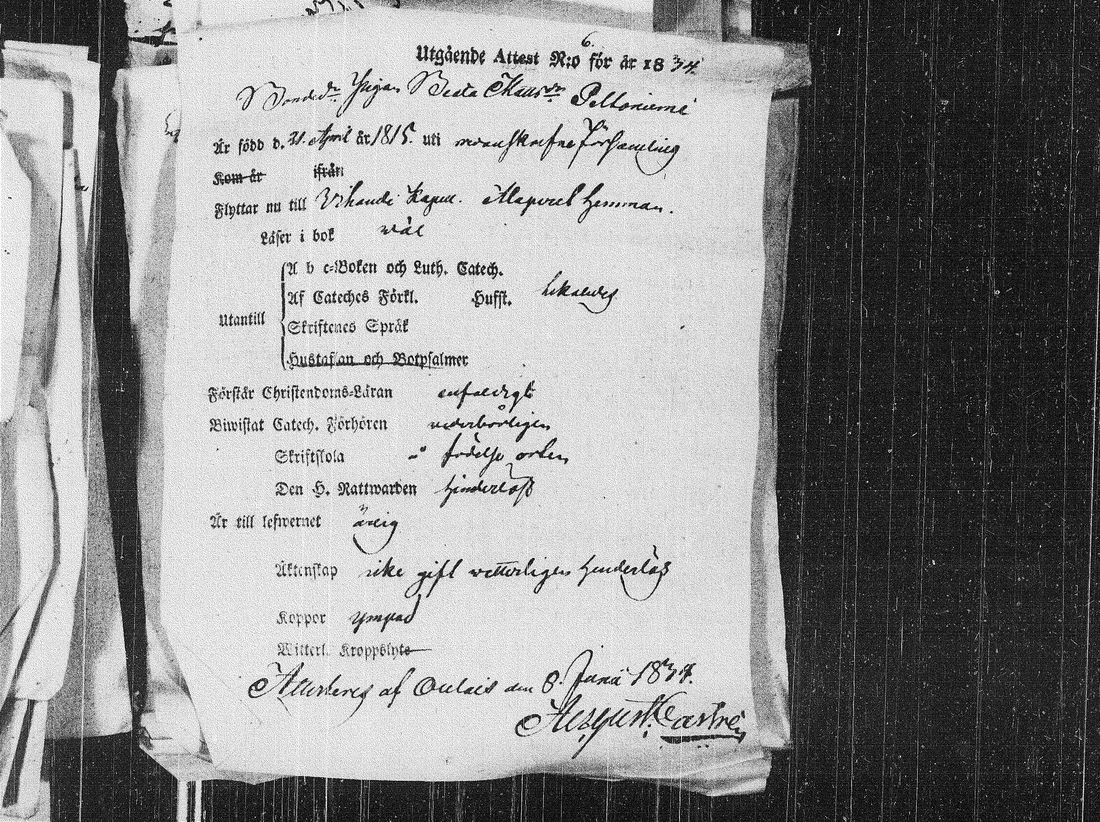 6.
Utgående Attest N:o för år 1834.
Bonded:r Pigan Beata Claus d:r Peltoniemi
Är född d. 21. April år 1815. uti ofvanskrefne Församling
Kom år ifrån
Flyttar nu till Vihandi Kapell. Alapirel hemman.
Läser i bok wäl
A b c-Boken och Luth. Catech.
Af Cateches Förkl. Husst. likaledes
Utantill
Skriftenes Språk
Hustaflan och Botpsalmer
Förstår Christendoms-Läran enfaldigt
Biwistat Catech. Förhören vederbörligen
Skriftskola i födelse orten
Den H. Nattwarden hinderlöst
Är till lefwernet ärlig
Äktenskap icke gift vetterligen hinderlös
Koppor ympad
Witterl. Kroppslyte
Attesteras af Oulais den 8. Junii 1834.
August Castrén